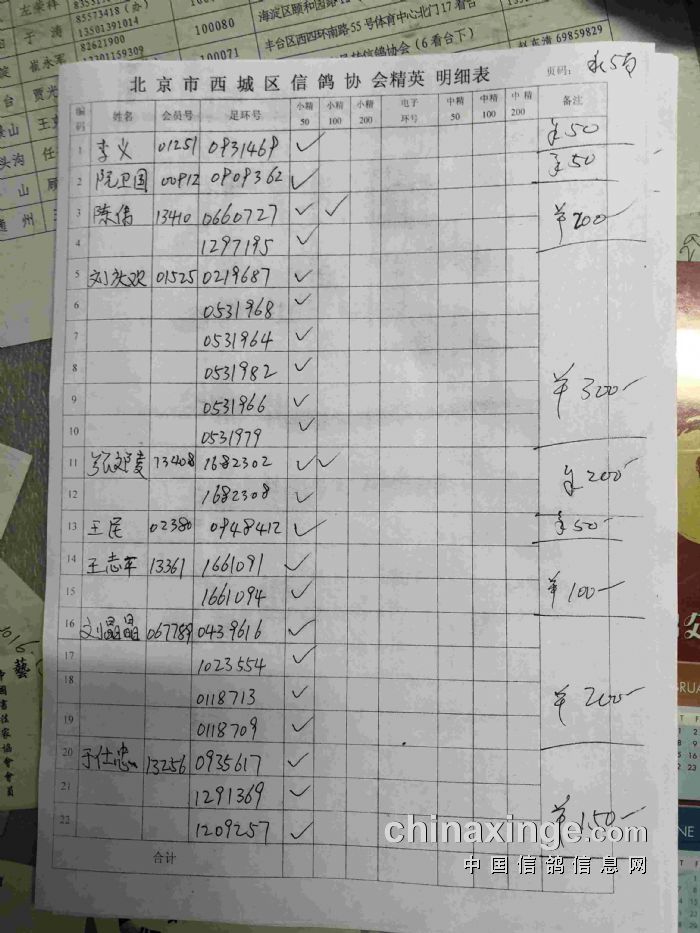 85573418（办）
于 涛 13501391014 100080 海淀区颐和园路12
82621900
崔永军 13301159309 100071 丰台区西四环南路55号体育中心北门17看台
信鸽协会（6看台下）
69859829
北京市西城区信鸽协会精英 明细表 页码：
编码 姓名 会员号 足环号 小精50 小精100 小精200 电子环号 中精50 中精100 中精200 备注
1 李义 01251 0931469 ✓ ¥50
2 阮卫国 00912 0909362 ✓ ¥50
3 陈伟 13410 0660727 ✓ ✓ ¥200-
4 1297195 ✓
5 刘庆欢 01525 0219687 ✓
6 0531968 ✓
7 0531964 ✓
8 0531982 ✓
9 0531966 ✓ ¥300-
10 0531979 ✓
11 13408 1682302 ✓ ✓ ¥200-
12 1682308 ✓
13 王民 02380 0948412 ✓ ¥50-
14 王志军 13361 1661091 ✓
15 1661094 ✓ ¥100-
16 刘晶晶 067789 0439616 ✓
17 1023554 ✓
18 0118713 ✓ ¥200-
19 0118709 ✓
20 于仕忠 13256 0935617 ✓
21 1291369 ✓
22 1209257 ✓ ¥150-
合计
chinaxinge.com
中国信鸽信息网